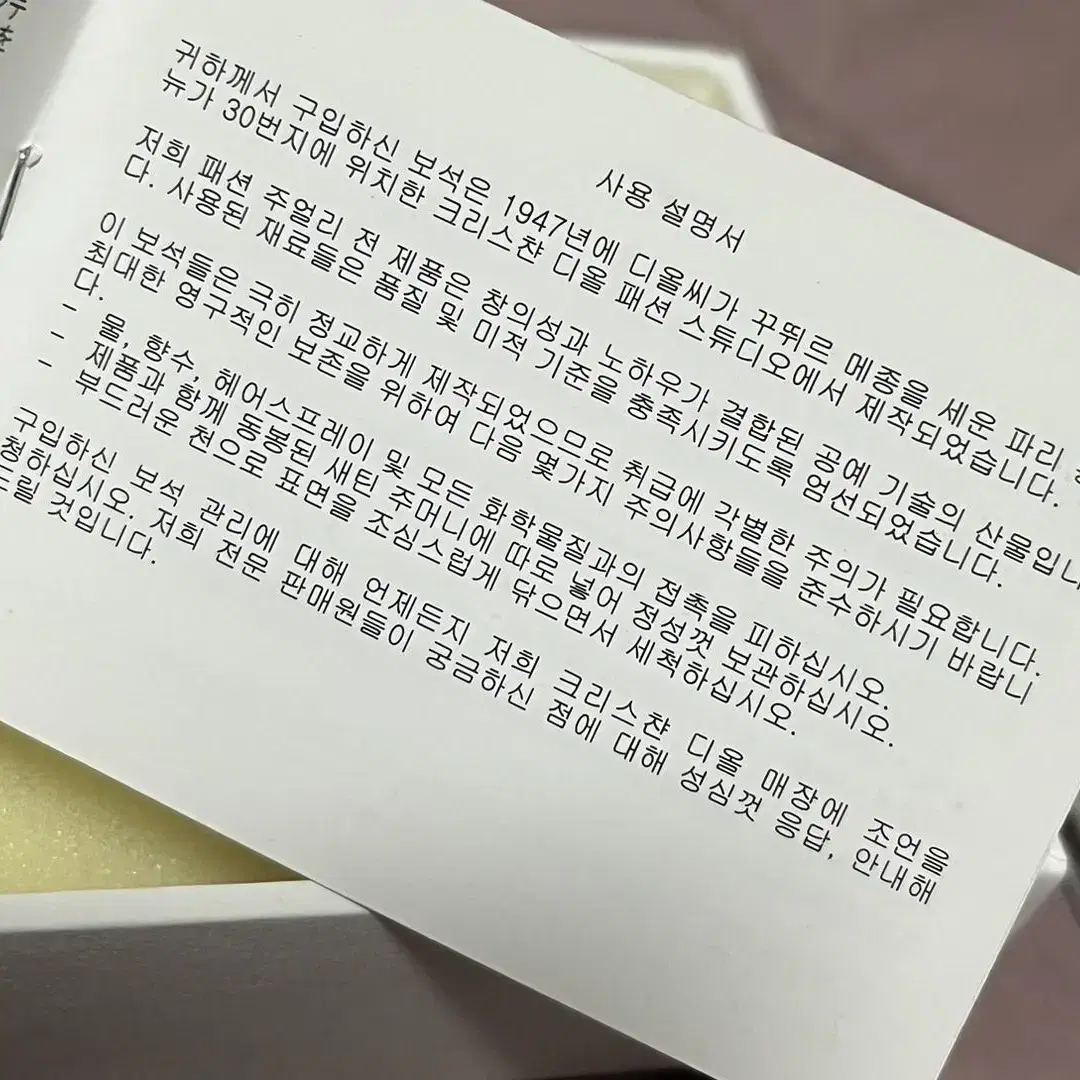 사용 설명서
귀하께서 구입하신 보석은 1947년에 디올씨가 꾸뛰르 메종을 세운 파리
뉴가 30번지에 위치한 크리스챤 디올 패션 스튜디오에서 제작되었습니다.
저희 패션 주얼리 전 제품은 창의성과 노하우가 결합된 공예 기술의 산물입니
다. 사용된 재료들은 품질 및 미적 기준을 충족시키도록 엄선되었습니다.
이 보석들은 극히 정교하게 제작되었으므로 취급에 각별한 주의가 필요합니다.
최대한 영구적인 보존을 위하여 다음 몇가지 주의사항들을 준수하시기 바랍니
다.
- 물, 향수, 헤어스프레이 및 모든 화학물질과의 접촉을 피하십시오.
- 제품과 함께 동봉된 새틴 주머니에 따로 넣어 정성껏 보관하십시오.
- 부드러운 천으로 표면을 조심스럽게 닦으면서 세척하십시오.
구입하신 보석 관리에 대해 언제든지 저희 크리스챤 디올 매장에 조언을
청하십시오. 저희 전문 판매원들이 궁금하신 점에 대해 성심껏 응답, 안내해
드릴 것입니다.